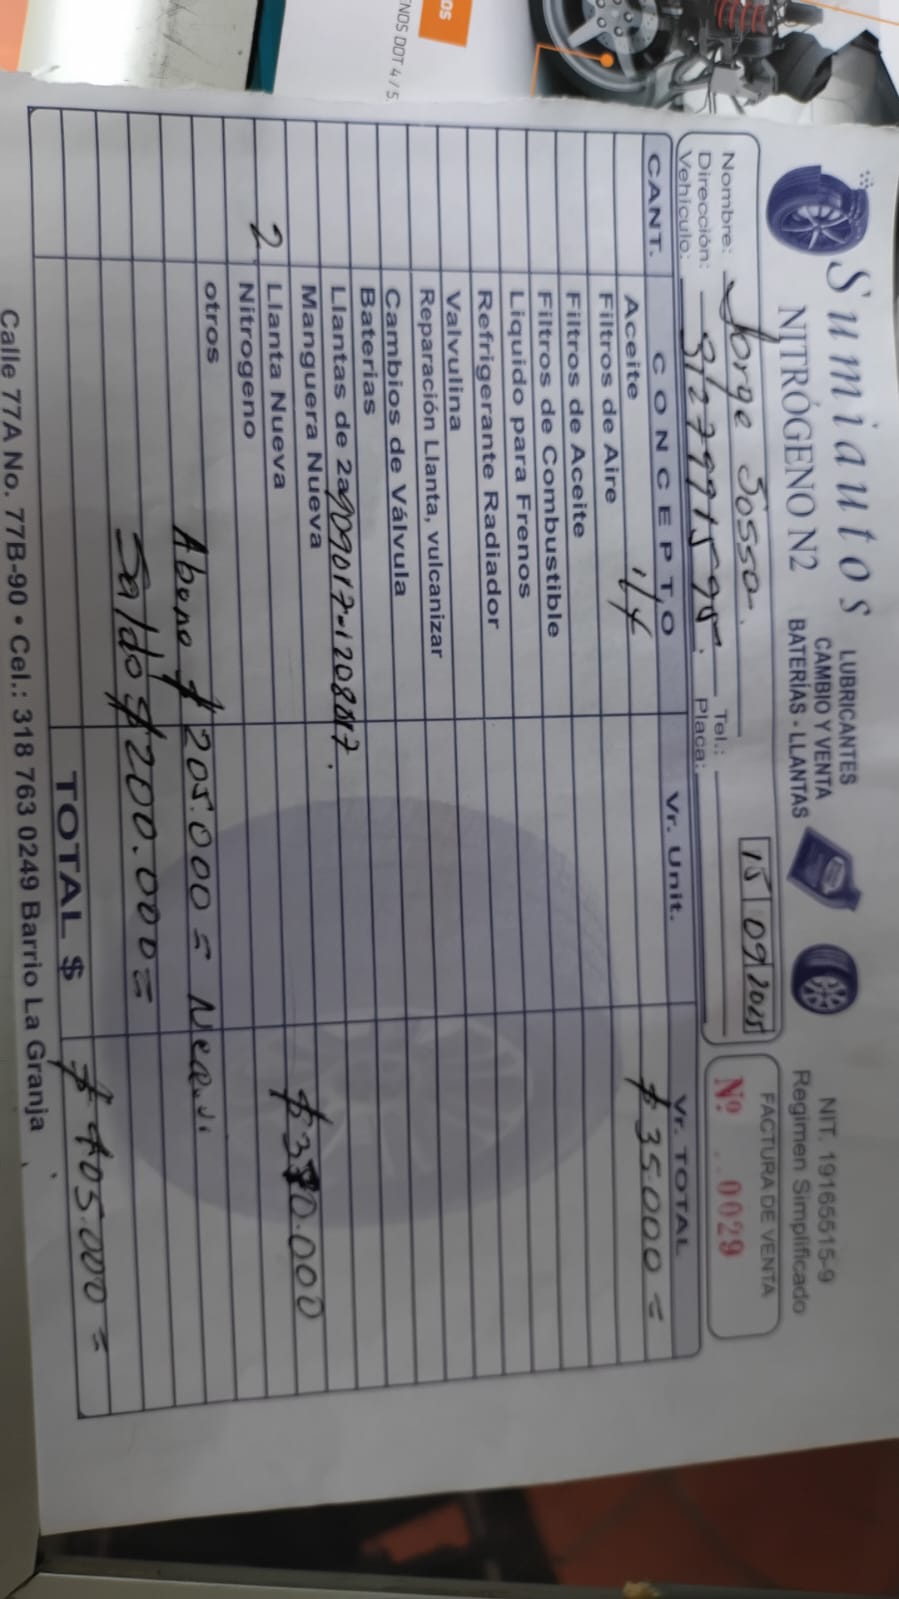 Sumiautos
NITRÓGENO N2
LUBRICANTES
CAMBIO Y VENTA
BATERÍAS - LLANTAS
NIT. 19165515-9
Regimen Simplificado
FACTURA DE VENTA
Nº 0029
15 09 2025
Nombre: Jorge Sossa.
Dirección: Tel.:
3127991595.
Vehículo: Placa:
CANT. CONCEPTO Vr. Unit. Vr. TOTAL
Aceite 1/4 $35.000=
Filtros de Aire
Filtros de Aceite
Filtros de Combustible
Liquido para Frenos
Refrigerante Radiador
Valvulina
Reparación Llanta, vulcanizar
Cambios de Válvula
Baterias
Llantas de 2a 909017-1208017.
Manguera Nueva
2 Llanta Nueva $370.000
Nitrogeno
otros
Abono $205.000= Nequi
Saldo $200.000=
TOTAL $ $405.000=
Calle 77A No. 77B-90 • Cel.: 318 763 0249 Barrio La Granja
OS
ENOS DOT 4 / 5.